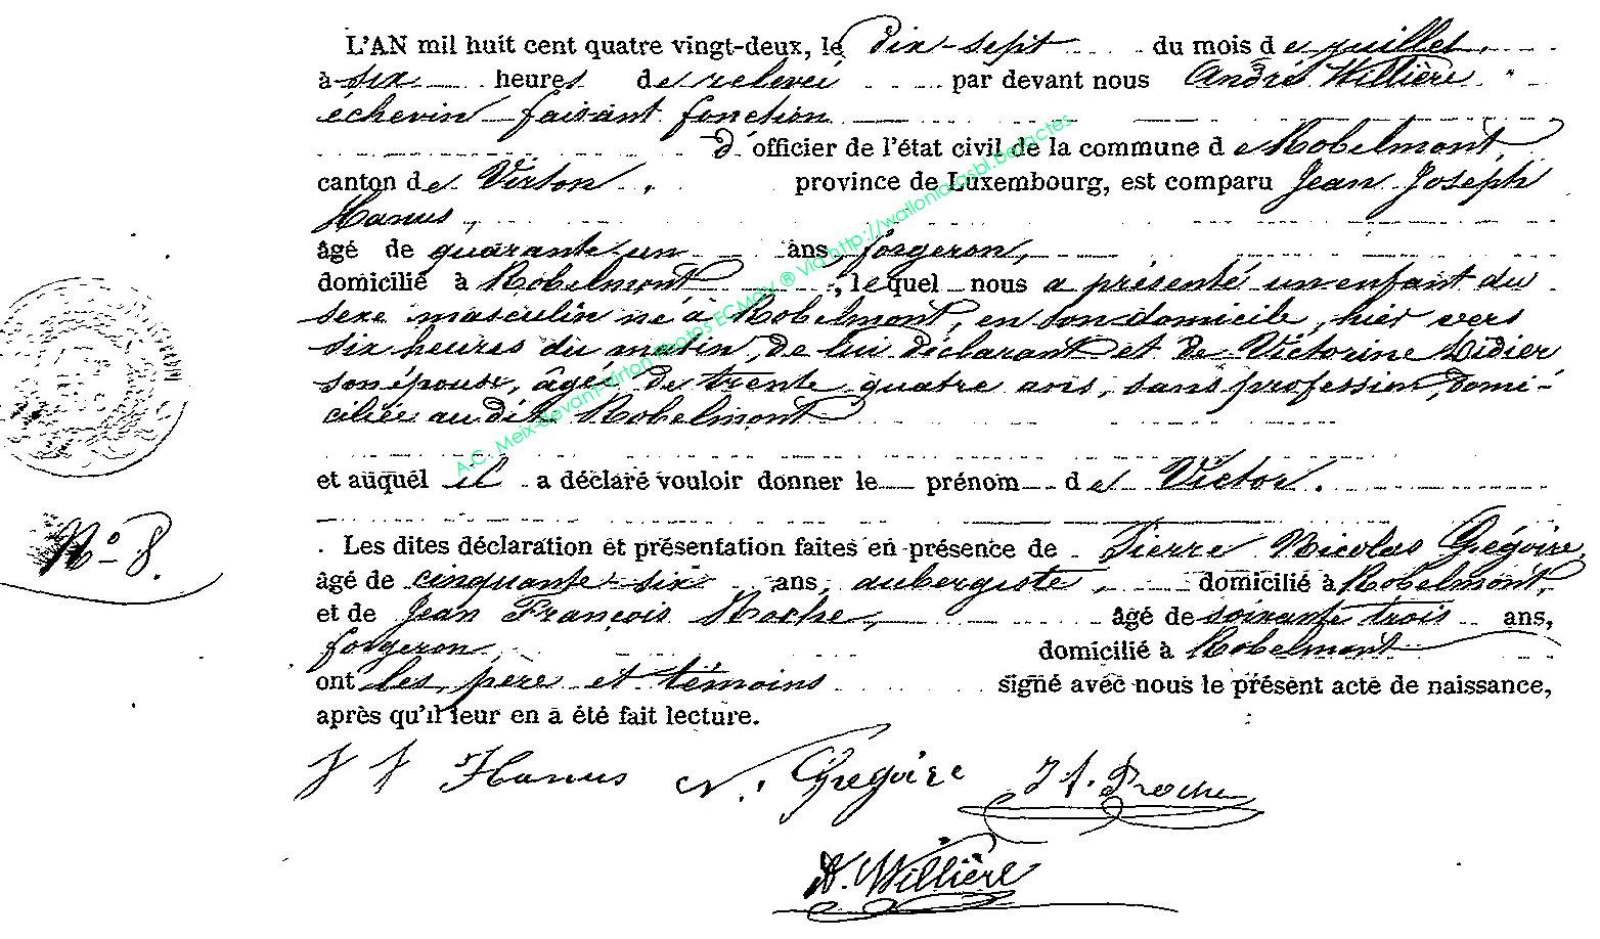 L'AN mil huit cent quatre vingt-deux, le dix-sept du mois de juillet,
à six heures de relevée par devant nous André Willière
échevin faisant fonction
d'officier de l'état civil de la commune de Robelmont,
canton de Virton, province de Luxembourg, est comparu Jean Joseph
Hanus,
âgé de quarante un ans, forgeron,
domicilié à Robelmont, lequel nous a présenté un enfant du
sexe masculin né à Robelmont, en son domicile, hier vers
six heures du matin, de lui déclarant et de Victorine Didier
son épouse, âgée de trente quatre ans, sans profession, domi-
ciliée au dit Robelmont
et auquel il a déclaré vouloir donner le prénom de Victor.
Nº 8.
Les dites déclaration et présentation faites en présence de Pierre Nicolas Grégoire,
âgé de cinquante-six ans, aubergiste, domicilié à Robelmont,
et de Jean François Roche, âgé de soixante trois ans,
forgeron, domicilié à Robelmont
ont les père et témoins signé avec nous le présent acte de naissance,
après qu'il leur en a été fait lecture.
J J Hanus N. Gregoire J f. Proche
A. Willière
A.C. Meix-devant-Virton Photos ECMdV ® via http://wallonia.asbl.be/actes